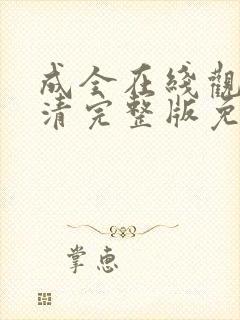 成全在綫觀
清完整版免
掌惠